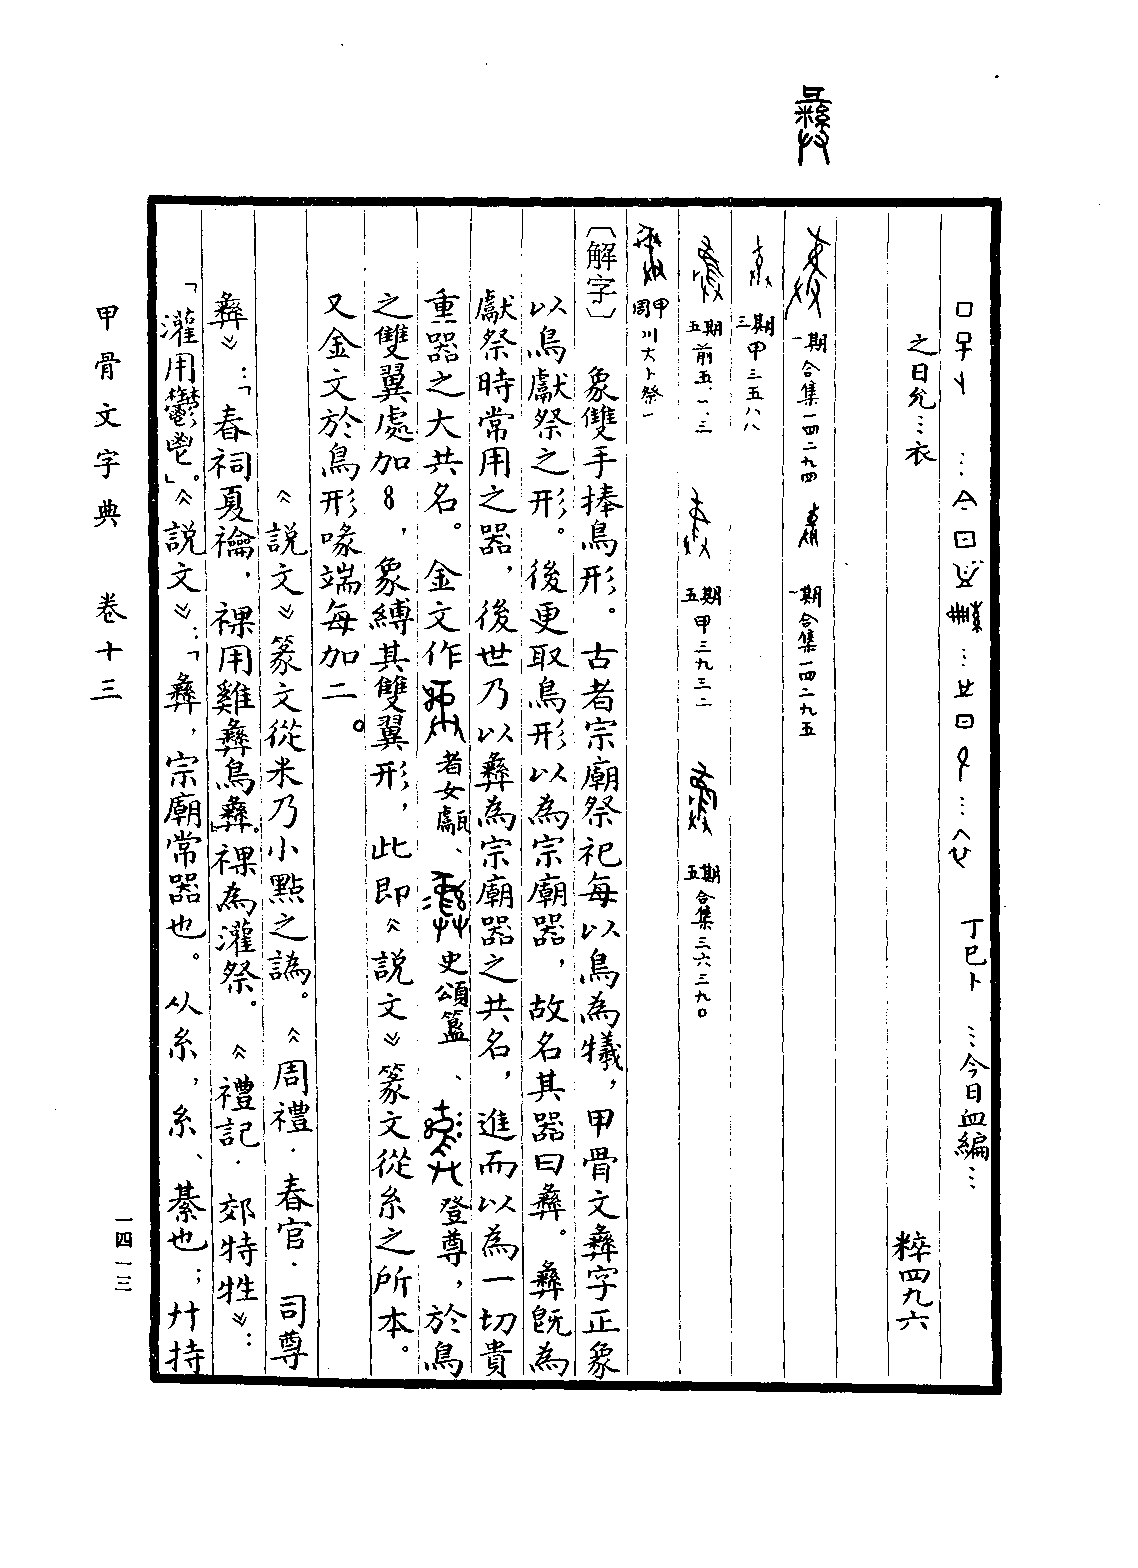 彝
丁巳卜 …今日血編…
之日允…衣 粹四九六
一期 合集一四二九四 一期 合集一四二九五
三期 甲三五八八
五期 前五.一.三 五期 甲三九三二 五期 合集三六三九〇
周甲 川大卜祭一
〔解字〕 象雙手捧鳥形。古者宗廟祭祀每以鳥為犧，甲骨文彝字正象
以鳥獻祭之形。後更取鳥形以為宗廟器，故名其器曰彝。彝既為
獻祭時常用之器，後世乃以彝為宗廟器之共名，進而以為一切貴
重器之大共名。金文作 者女甗、 史頌簋、 登尊，於鳥
之雙翼處加8，象縛其雙翼形，此即《說文》篆文從糸之所本。
又金文於鳥形喙端每加二。
《說文》篆文從米乃小點之譌。《周禮．春官．司尊
彝》：「春祠夏禴，祼用雞彝鳥彝。」祼為灌祭。《禮記．郊特牲》：
「灌用鬱鬯。」《說文》：「彝，宗廟常器也。从糸，糸、綦也；廾持
甲骨文字典 卷十三
一四一三